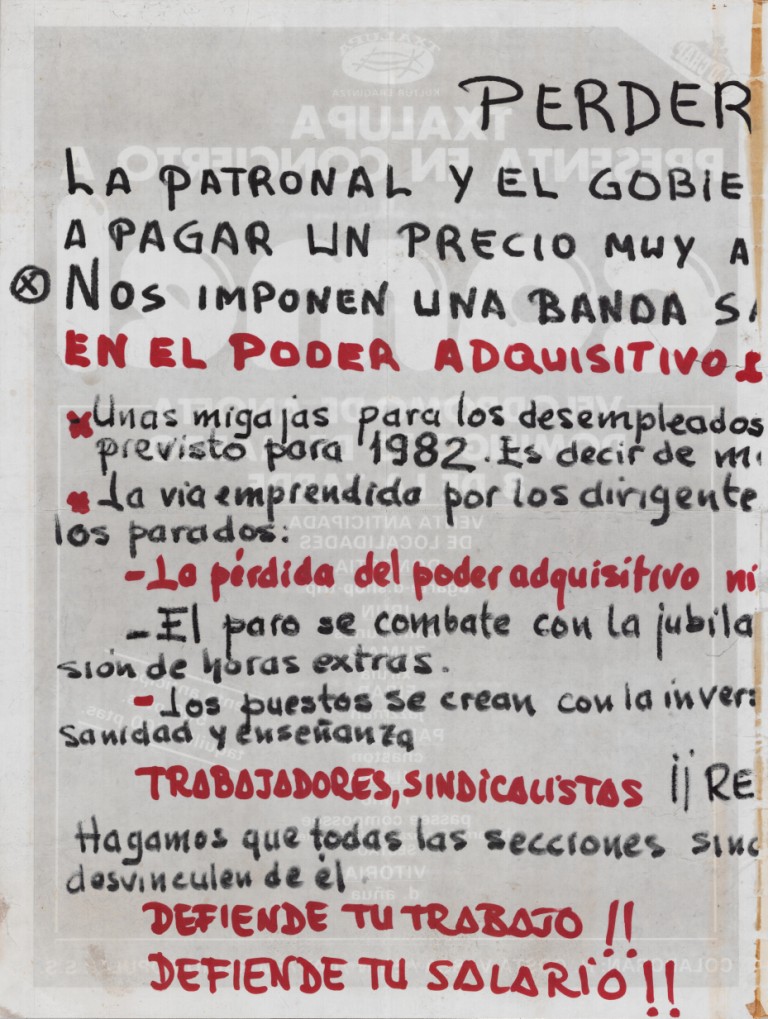 PERDER
LA PATRONAL Y EL GOBIE
A PAGAR UN PRECIO MUY A
Ⓧ NOS IMPONEN UNA BANDA SA
EN EL PODER ADQUISITIVO
x Unas migajas para los desempleados
previsto para 1982. Es decir de
x La via emprendida por los dirigente
los parados:
- La pérdida del poder adquisitivo ni
- El paro se combate con la jubila
sión de horas extras.
- Los puestos se crean con la inver
sanidad y enseñanza
TRABAJADORES, SINDICALISTAS ¡¡ RE
Hagamos que todas las secciones sind
desvinculen de él
DEFIENDE TU TRABAJO !!
DEFIENDE TU SALARIO !!